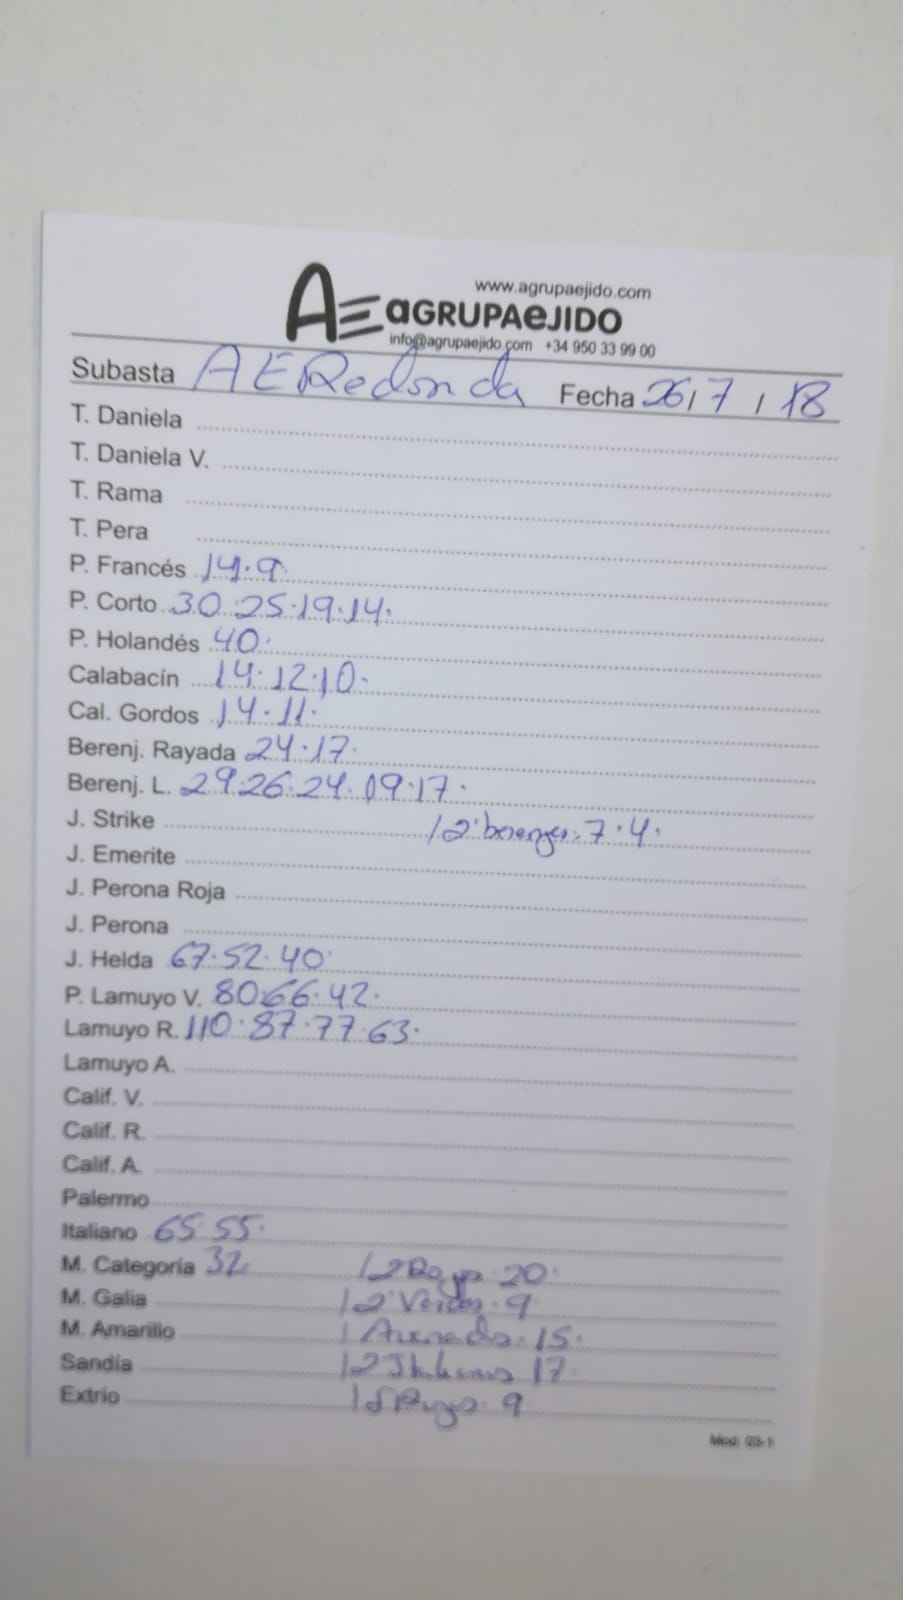 www.agrupaejido.com
AE aGRUPAeJIDO
info@agrupaejido.com +34 950 33 99 00
Subasta AERedonda Fecha 26/7/18
T. Daniela
T. Daniela V.
T. Rama
T. Pera
P. Francés 14.9
P. Corto 30.25.19.14.
P. Holandés 40.
Calabacín 14.12.10.
Cal. Gordos 14.11.
Berenj. Rayada 24.17.
Berenj. L. 29.26.24.19.17.
J. Strike 7.4.
J. Emerite
J. Perona Roja
J. Perona
J. Helda 67.52.40.
P. Lamuyo V. 80.66.42.
Lamuyo R. 110.87.77.63.
Lamuyo A.
Calif. V.
Calif. R.
Calif. A.
Palermo
Italiano 65.55.
M. Categoría 32 20.
M. Galia 9
M. Amarillo 15.
Sandía 17
Extrío 9
Mod. 03-1